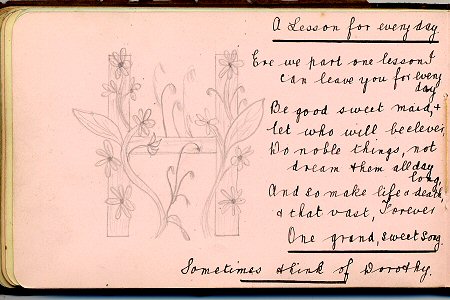 A Lesson for every day.
Ere we part one lesson I
can leave you for every
day
Be good sweet maid, &
let who will be clever,
Do noble things, not
dream them all day
long,
And so make life & death,
& that vast, Forever
One grand, sweet song.
Sometimes think of Dorothy.